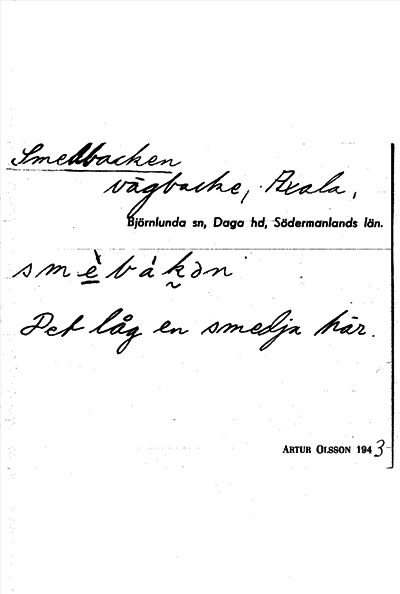 Smedbacken
vägbacke, Axala,
Björnlunda sn, Daga hd, Södermanlands län.
smè̱bákən
Det låg en smedja här.
ARTUR OLSSON 1943